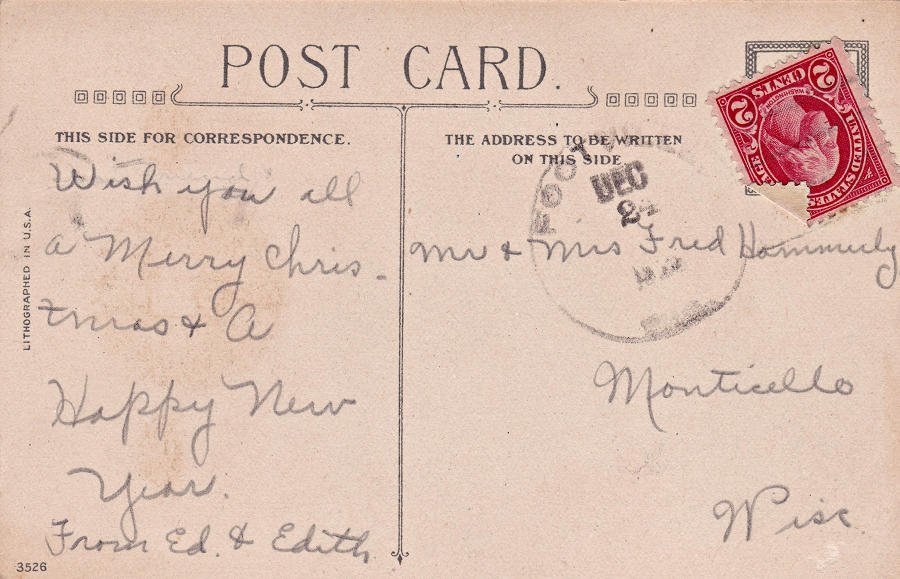 POST CARD.
THIS SIDE FOR CORRESPONDENCE.
THE ADDRESS TO BE WRITTEN
ON THIS SIDE
Wish you all
a Merry Chris-
tmas & A
Happy New
Year.
From Ed. & Edith
Mr & Mrs Fred Hammerly
Monticello
Wisc
DEC
UNITED STATES
WASHINGTON
2 CENTS 2
LITHOGRAPHED IN U.S.A.
3526